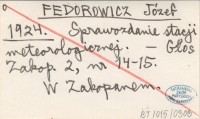 FEDOROWICZ Józef
1924. Sprawozdanie stacji
meteorologicznej. — Głos
Zakop 2, nr 14-15.
W Zakopanem.
BT 1015/0306